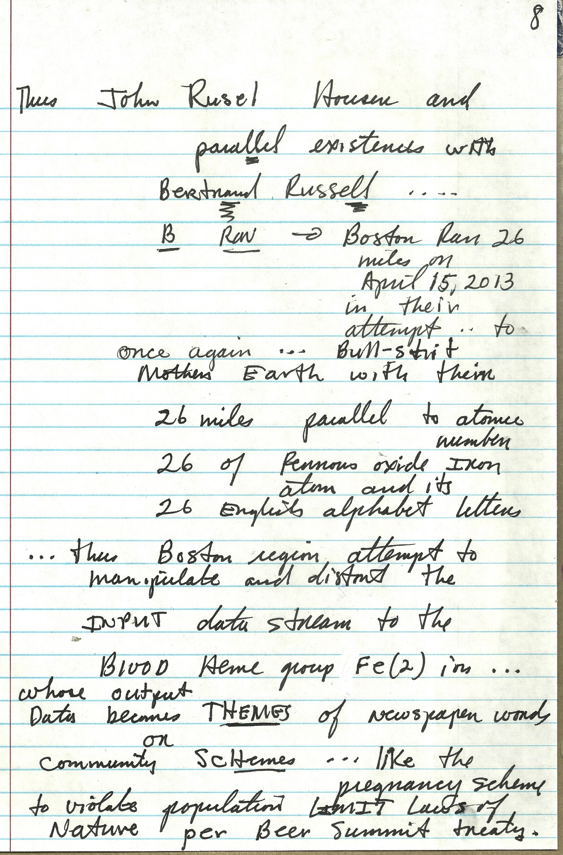 8
Thus John Rusel Housen and
parallel existences with
Bertrand Russell .....
B Ran → Boston Ran 26
miles on
April 15, 2013
in their
attempt .. to
once again ... Bull-shit
Mothers Earth with their
26 miles parallel to atomic
number
26 of Ferrous oxide Iron
atom and its
26 English alphabet letters
... thus Boston region attempt to
manipulate and distort the
INPUT data stream to the
BlOOD Heme group Fe(2) ion ...
whose output
Data becomes THEMES of newspaper words
or
community ScHemes ... like the
pregnancy scheme
to violate population LIMIT Laws of
Nature per Beer Summit treaty.